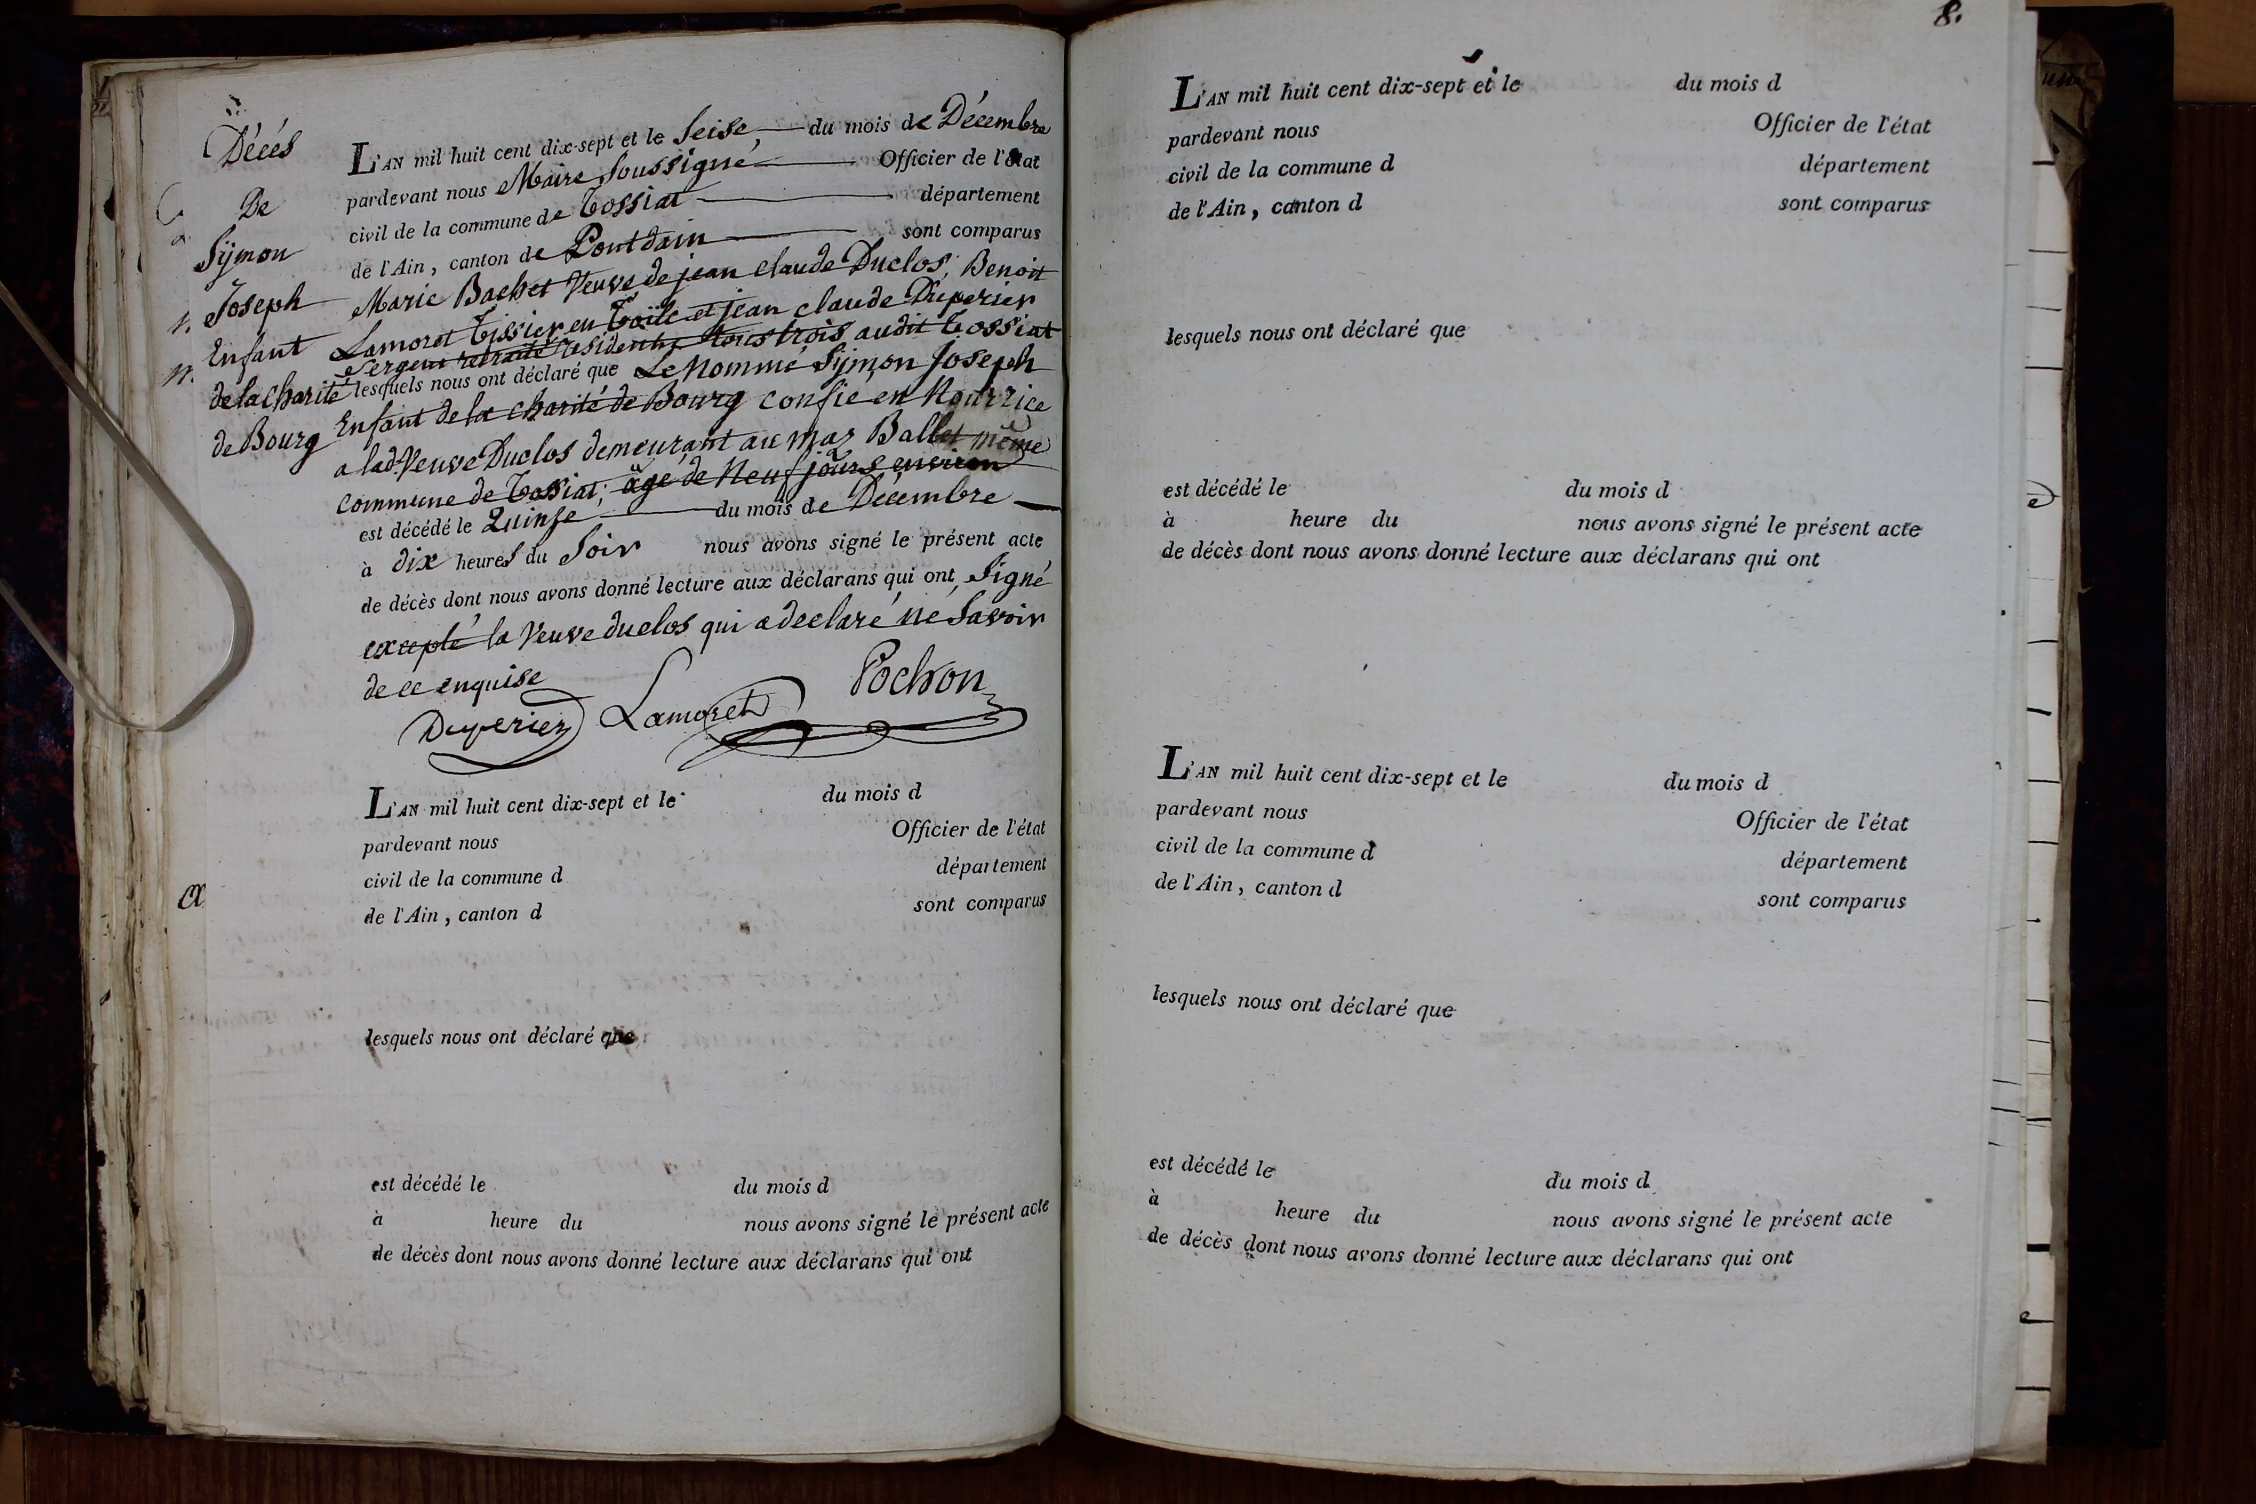 Décés
De
Sijmon
Joseph
Enfant
de la Charité
de Bourg
L'AN mil huit cent dix-sept et le Seise du mois de Décembre
pardevant nous Maire Soussigné Officier de l'état
civil de la commune de Tossiat département
de l'Ain, canton de Pontdain sont comparus
Marie Bachet Veuve de jean claude Duclos, Benoit
Lamoret Tissier en Toile et jean claude Duperier
Sergent retraité résidents tous trois audit Tossiat
lesquels nous ont déclaré que Le Nommé Sijmon Joseph
Enfant de la charité de Bourg confié en Nourrice
a lad. Veuve Duclos demeurant au mas Ballet même
commune de Tossiat, âgé de Neuf jours environ
est décédé le Quinse du mois de Décembre
à dix heures du Soir nous avons signé le présent acte
de décès dont nous avons donné lecture aux déclarans qui ont Signé
excepté la Veuve duclos qui a declaré ne Savoir
de ce enquise
Duperier Lamoret Pochon
L'AN mil huit cent dix-sept et le du mois d
pardevant nous Officier de l'état
civil de la commune d département
de l'Ain, canton d sont comparus
lesquels nous ont déclaré que
est décédé le du mois d
à heure du nous avons signé le présent acte
de décès dont nous avons donné lecture aux déclarans qui ont
8.
L'AN mil huit cent dix-sept et le du mois d
pardevant nous Officier de l'état
civil de la commune d département
de l'Ain, canton d sont comparus
lesquels nous ont déclaré que
est décédé le du mois d
à heure du nous avons signé le présent acte
de décès dont nous avons donné lecture aux déclarans qui ont
L'AN mil huit cent dix-sept et le du mois d
pardevant nous Officier de l'état
civil de la commune d département
de l'Ain, canton d sont comparus
lesquels nous ont déclaré que
est décédé le du mois d
à heure du nous avons signé le présent acte
de décès dont nous avons donné lecture aux déclarans qui ont